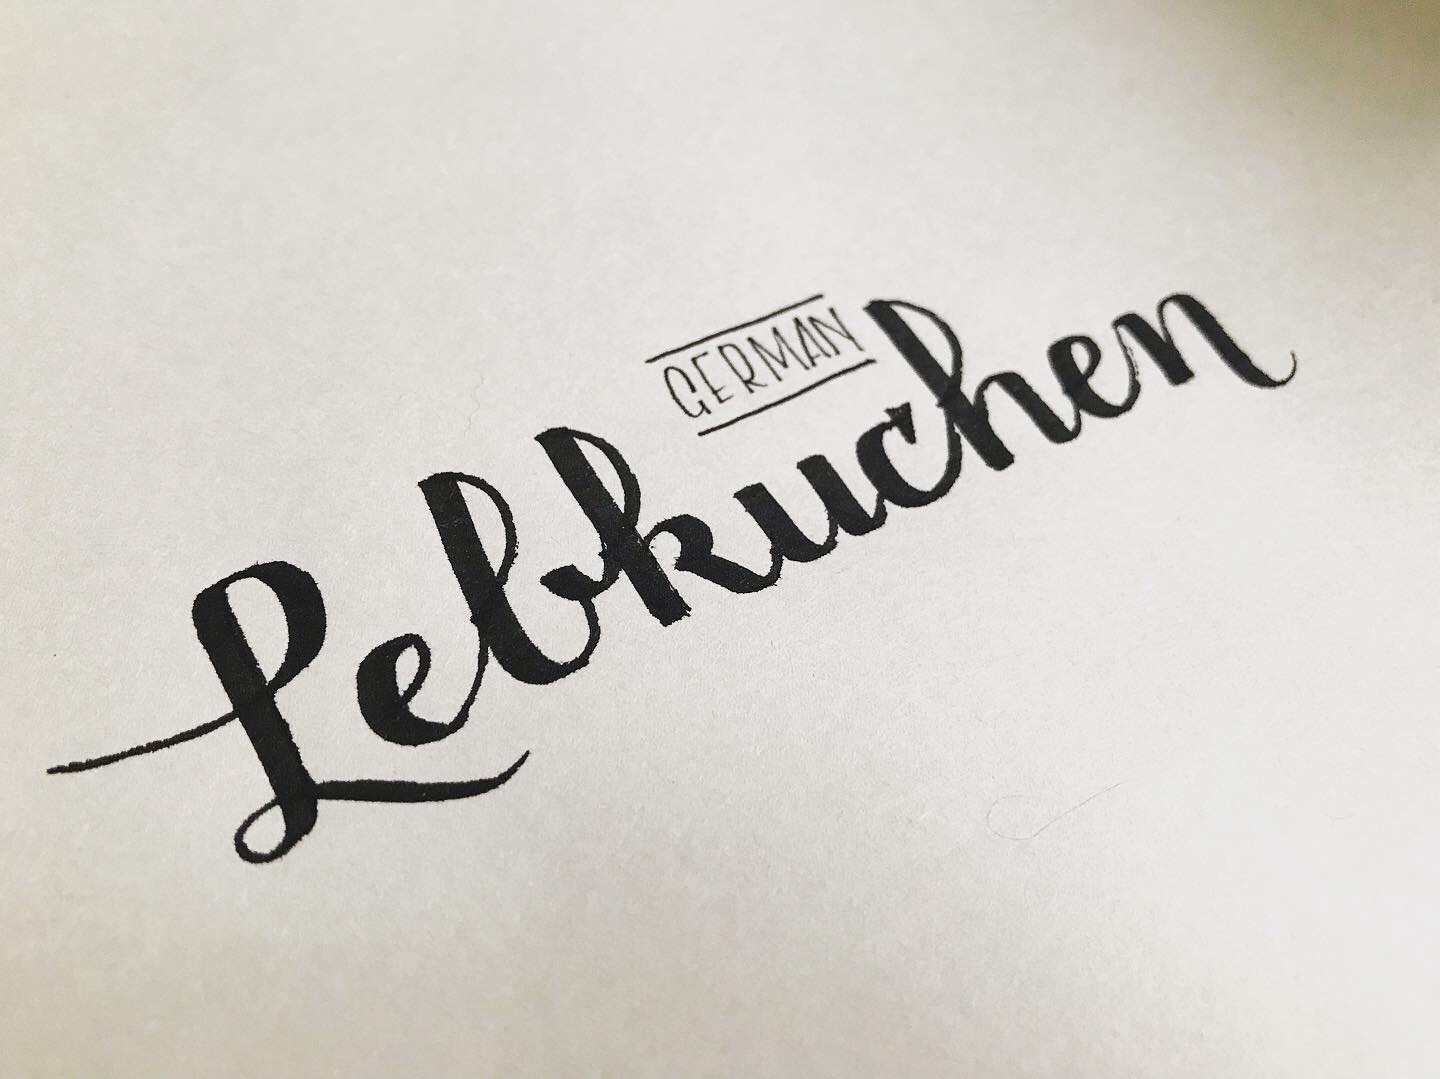 GERMAN
Lebkuchen